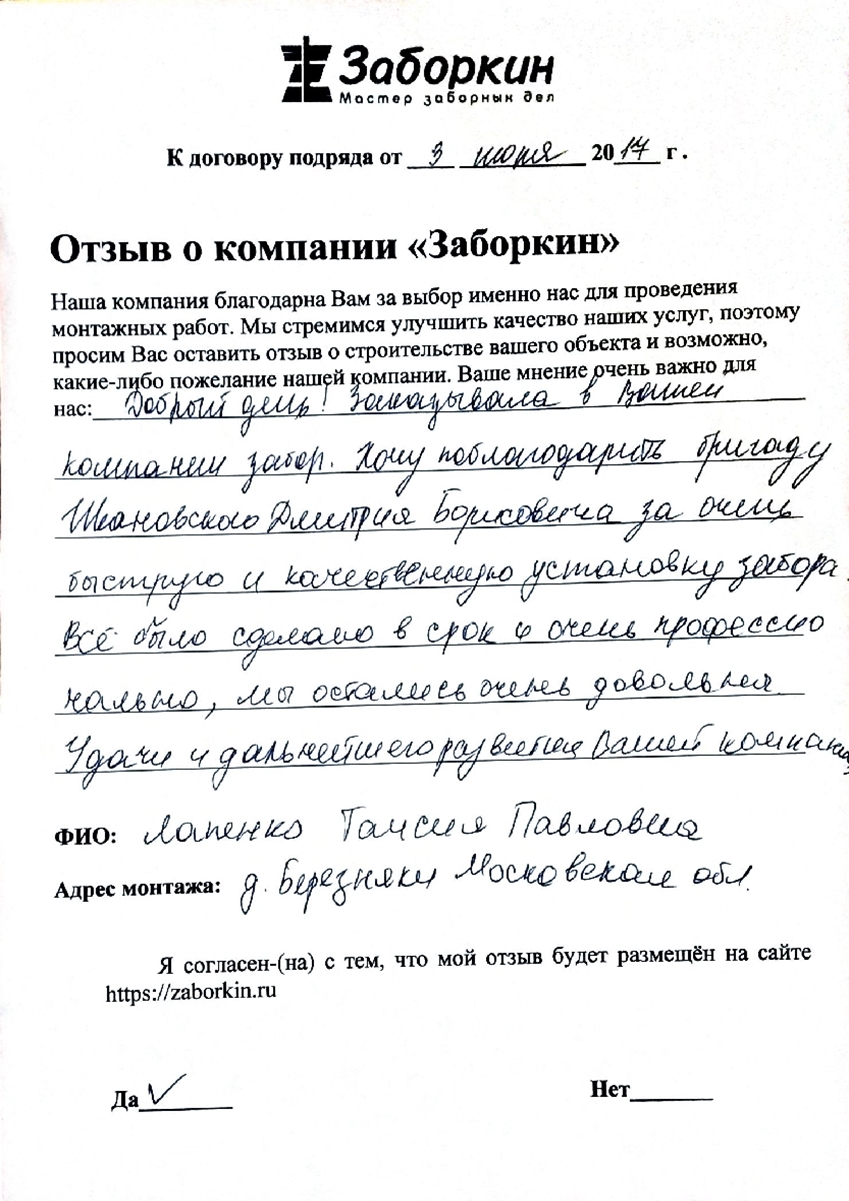 Заборкин
Мастер заборных дел
К договору подряда от 3 июня 2017 г .
Отзыв о компании «Заборкин»
Наша компания благодарна Вам за выбор именно нас для проведения
монтажных работ. Мы стремимся улучшить качество наших услуг, поэтому
просим Вас оставить отзыв о строительстве вашего объекта и возможно,
какие-либо пожелание нашей компании. Ваше мнение очень важно для
нас: Добрый день! Заказывала в Вашей
компании забор. Хочу поблагодарить бригаду
Дмитрия Борисовича за очень
быструю и качественную установку забора.
Всё было сделано в срок и очень профессио
нально, мы остались очень довольны
Удачи и дальнейшего развития Вашей компании
ФИО: Лапенко Таисия Павловна
Адрес монтажа: д. Березняки Московская обл.
Я согласен-(на) с тем, что мой отзыв будет размещён на сайте
https://zaborkin.ru
Да Нет